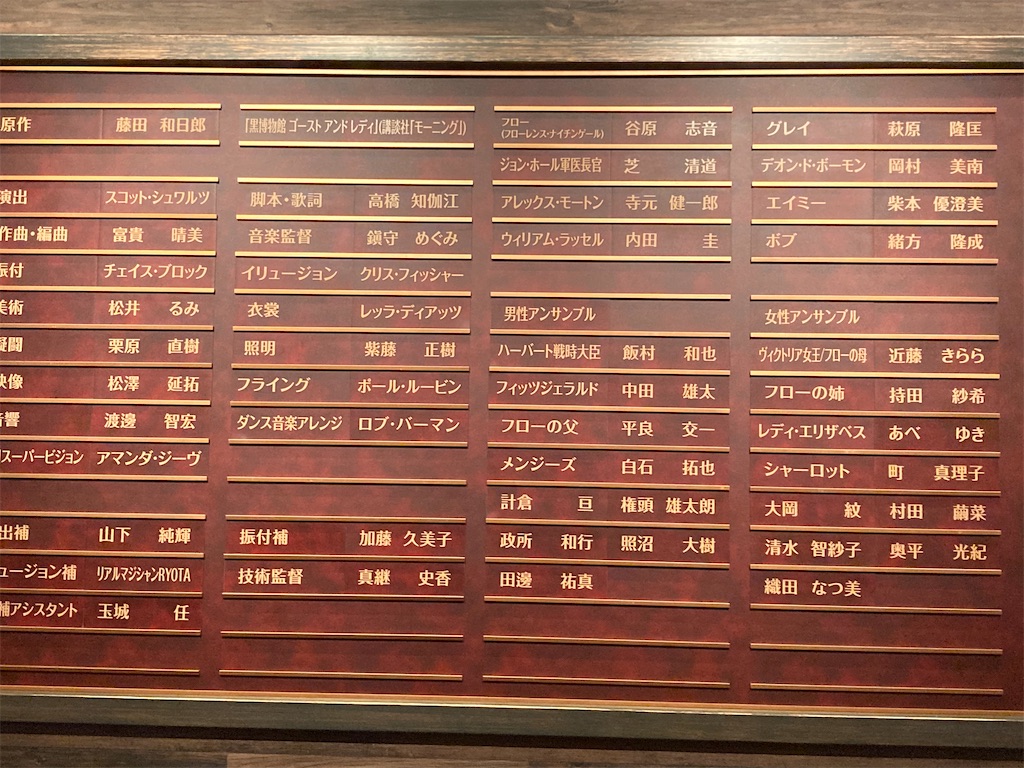 原作 藤田 和日郎
演出 スコット・シュワルツ
作曲・編曲 富貴 晴美
振付 チェイス・ブロック
美術 松井 るみ
擬闘 栗原 直樹
映像 松澤 延拓
音響 渡邊 智宏
スーパービジョン アマンダ・ジーヴ
出補 山下 純輝
ュージョン補 リアルマジシャンRYOTA
補アシスタント 玉城 任
「黒博物館 ゴースト アンド レディ」(講談社「モーニング」)
脚本・歌詞 高橋 知伽江
音楽監督 鎭守 めぐみ
イリュージョン クリス・フィッシャー
衣裳 レッラ・ディアッツ
照明 紫藤 正樹
フライング ポール・ルービン
ダンス音楽アレンジ ロブ・バーマン
振付補 加藤 久美子
技術監督 真継 史香
フロー
(フローレンス・ナイチンゲール) 谷原 志音
ジョン・ホール軍医長官 芝 清道
アレックス・モートン 寺元 健一郎
ウィリアム・ラッセル 内田 圭
男性アンサンブル
ハーバート戦時大臣 飯村 和也
フィッツジェラルド 中田 雄太
フローの父 平良 交一
メンジーズ 白石 拓也
計倉 亘 権頭 雄太朗
政所 和行 照沼 大樹
田邊 祐真
グレイ 萩原 隆匡
デオン・ド・ボーモン 岡村 美南
エイミー 柴本 優澄美
ボブ 緒方 隆成
女性アンサンブル
ヴィクトリア女王/フローの母 近藤 きらら
フローの姉 持田 紗希
レディ・エリザベス あべ ゆき
シャーロット 町 真理子
大岡 紋 村田 繭菜
清水 智紗子 奥平 光紀
織田 なつ美